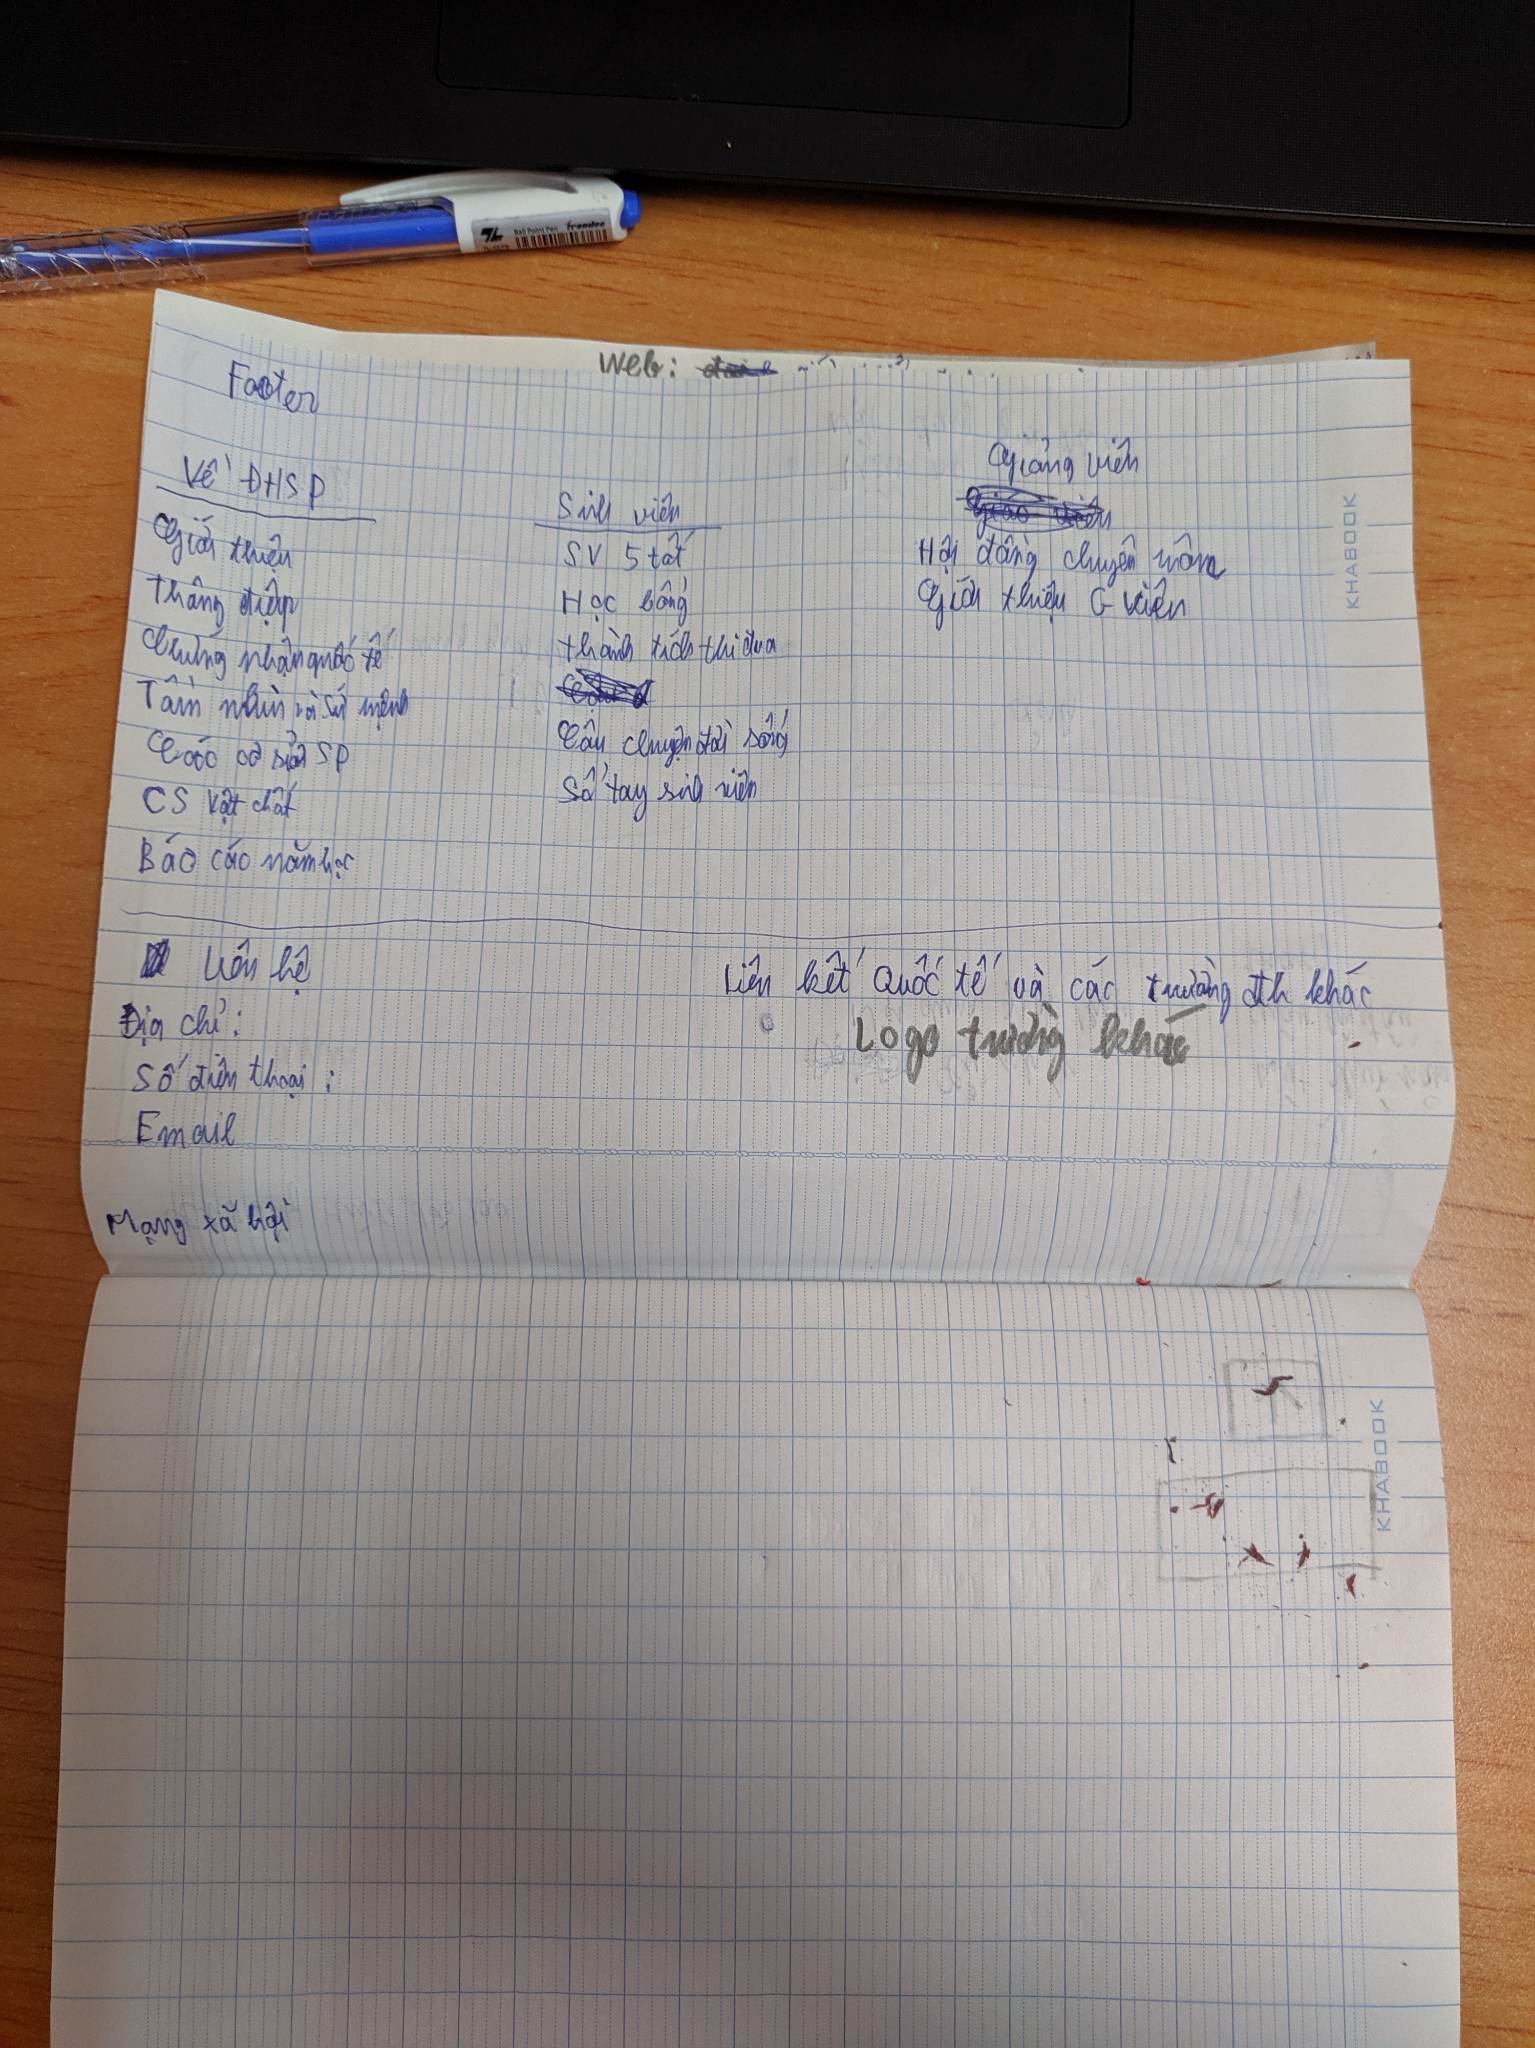 Ball Point Pen Trendee
Web:
Footer
Về ĐHSP
Giới thiệu
Thông điệp
Chứng nhận quốc tế
Tầm nhìn và sứ mệnh
Các cơ sở SP
CS vật chất
Báo cáo năm học
Sinh viên
SV 5 tốt
Học bổng
thành tích thi đua
Câu chuyện đời sống
Sổ tay sinh viên
Giảng viên
Hội đồng chuyên môn
Giới thiệu G viên
Liên hệ
Địa chỉ:
Số điện thoại:
Email
Mạng xã hội
Liên kết Quốc tế và các trường đh khác
Logo trường khác
KHABOOK
KHABOOK